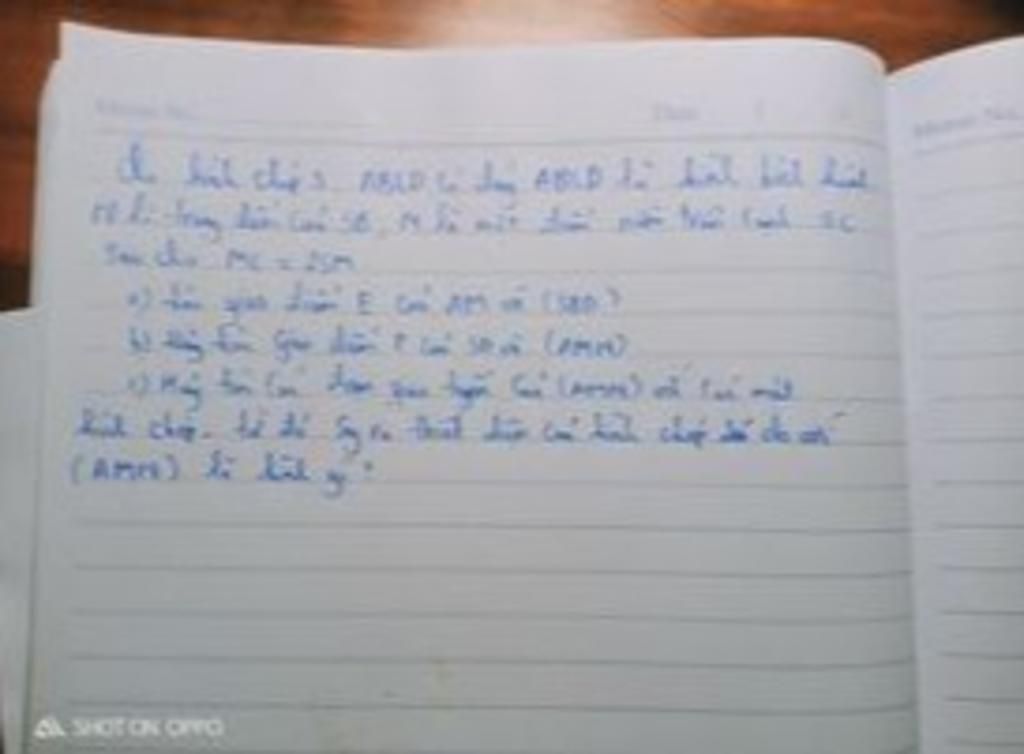 Memo No.
Date / /
Memo No.
Cho hình chóp S. ABCD có đáy ABCD là hình bình hành
N là trung điểm của SB, M là một điểm nằm trên cạnh SC
Sao cho MC = 2SM
a) tìm giao điểm E của AM và (SBD)?
b) Hãy tìm giao điểm F của SD và (AMN)
c) Hãy tìm các đoạn giao tuyến của (AMN) với các mặt
hình chóp. từ đó suy ra thiết diện của hình chóp đó cho với
(AMN) là hình gì?
SHOT ON OPPO